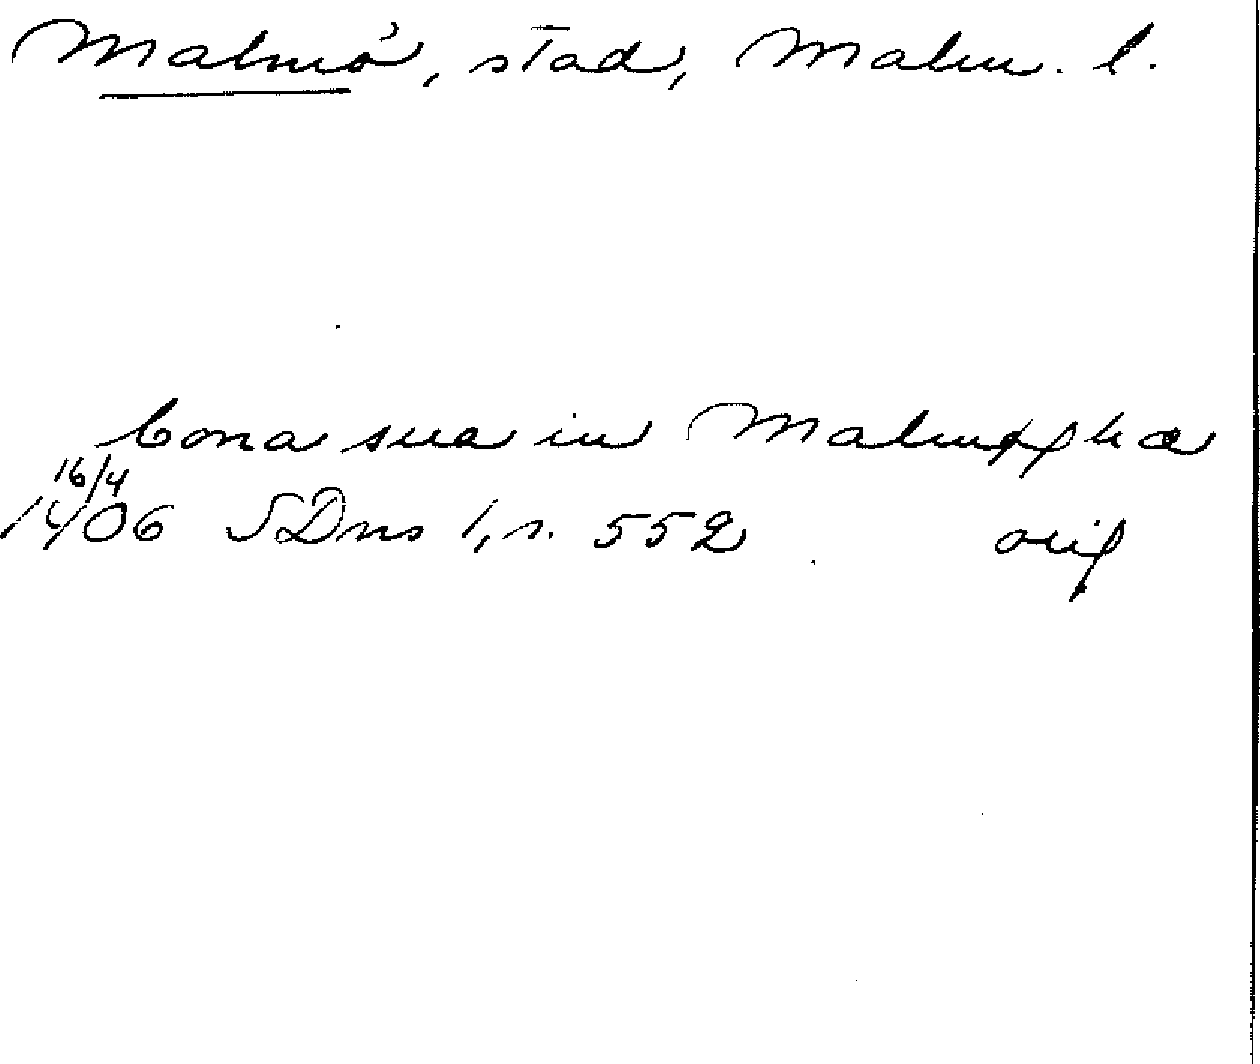 Malmö, stad, Malm. l.
bona sua in Malmøghæ
16/4
1406 SDns 1, s. 552 orig